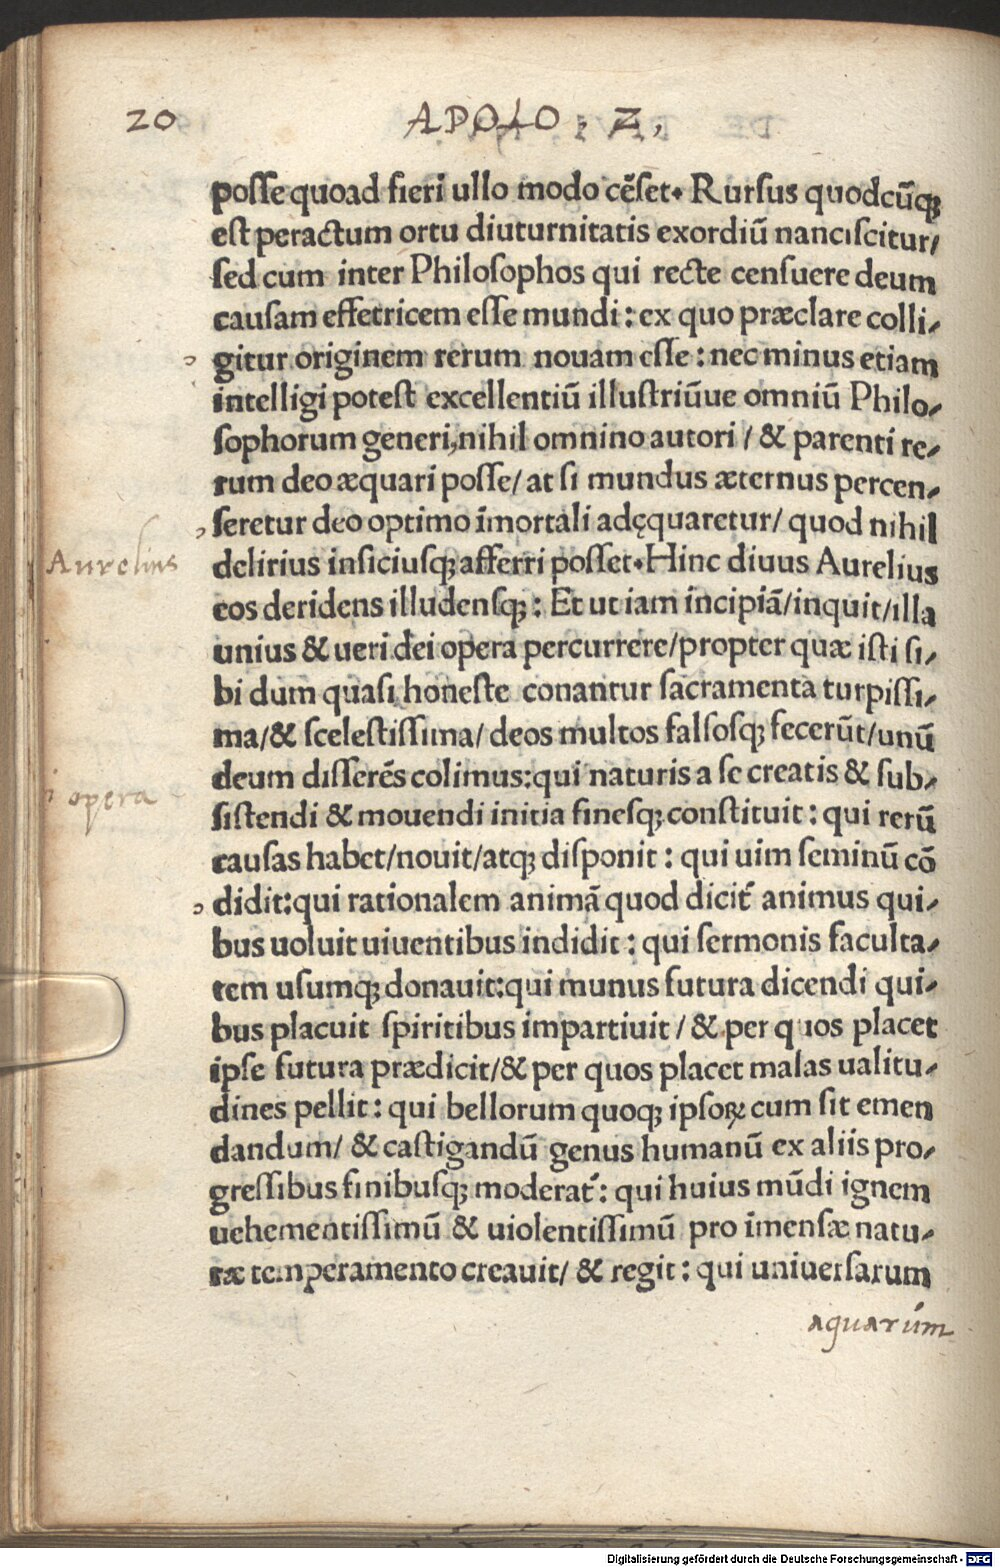 20 APOLO, Z,
poſſe quoad fieri ullo modo cēſet. Rurſus quodcūꝗ
eſt peractum ortu diuturnitatis exordiū nanciſcitur/
ſed cum inter Philoſophos qui recte cenſuere deum
cauſam effetricem eſſe mundi: ex quo præclare colli-
gitur originem rerum nouam eſſe: nec minus etiam
intelligi poteſt excellentiū illuſtriūue omniū Philo-
ſophorum generi, nihil omnino autori / & parenti re-
rum deo æquari poſſe/ at ſi mundus æternus percen-
ſeretur deo optimo īmortali adęquaretur/ quod nihil
Aurelius
delirius inſiciuſqꝫ afferri poſſet. Hinc diuus Aurelius
eos deridens illudenſqꝫ: Et ut iam incipiā/inquit/illa
unius & ueri dei opera percurrere/propter quæ iſti ſi-
bi dum quaſi honeſte conantur ſacramenta turpiſſi-
ma/& ſceleſtiſſima/ deos multos falſoſqꝫ fecerūt/unū
deum diſſerēs colimus: qui naturis a ſe creatis & ſub-
opera
ſiſtendi & mouendi initia fineſqꝫ conſtituit: qui rerū
cauſas habet/nouit/atqꝫ diſponit: qui uim ſeminū cō
didit: qui rationalem animā quod dicit᷑ animus qui-
bus uoluit uiuentibus indidit: qui ſermonis faculta-
tem uſumqꝫ donauit: qui munus futura dicendi qui-
bus placuit ſpiritibus impartiuit / & per quos placet
ipſe futura prædicit/& per quos placet malas ualitu-
dines pellit: qui bellorum quoqꝫ ipſoꝝ cum ſit emen
dandum/ & caſtigandū genus humanū ex aliis pro-
greſſibus finibuſqꝫ moderat᷑: qui huius mūdi ignem
uehementiſſimū & uiolentiſſimū pro īmenſæ natu-
ræ temperamento creauit/ & regit: qui uniuerſarum
aquarúm
Digitalisierung gefördert durch die Deutsche Forschungsgemeinschaft - DFG